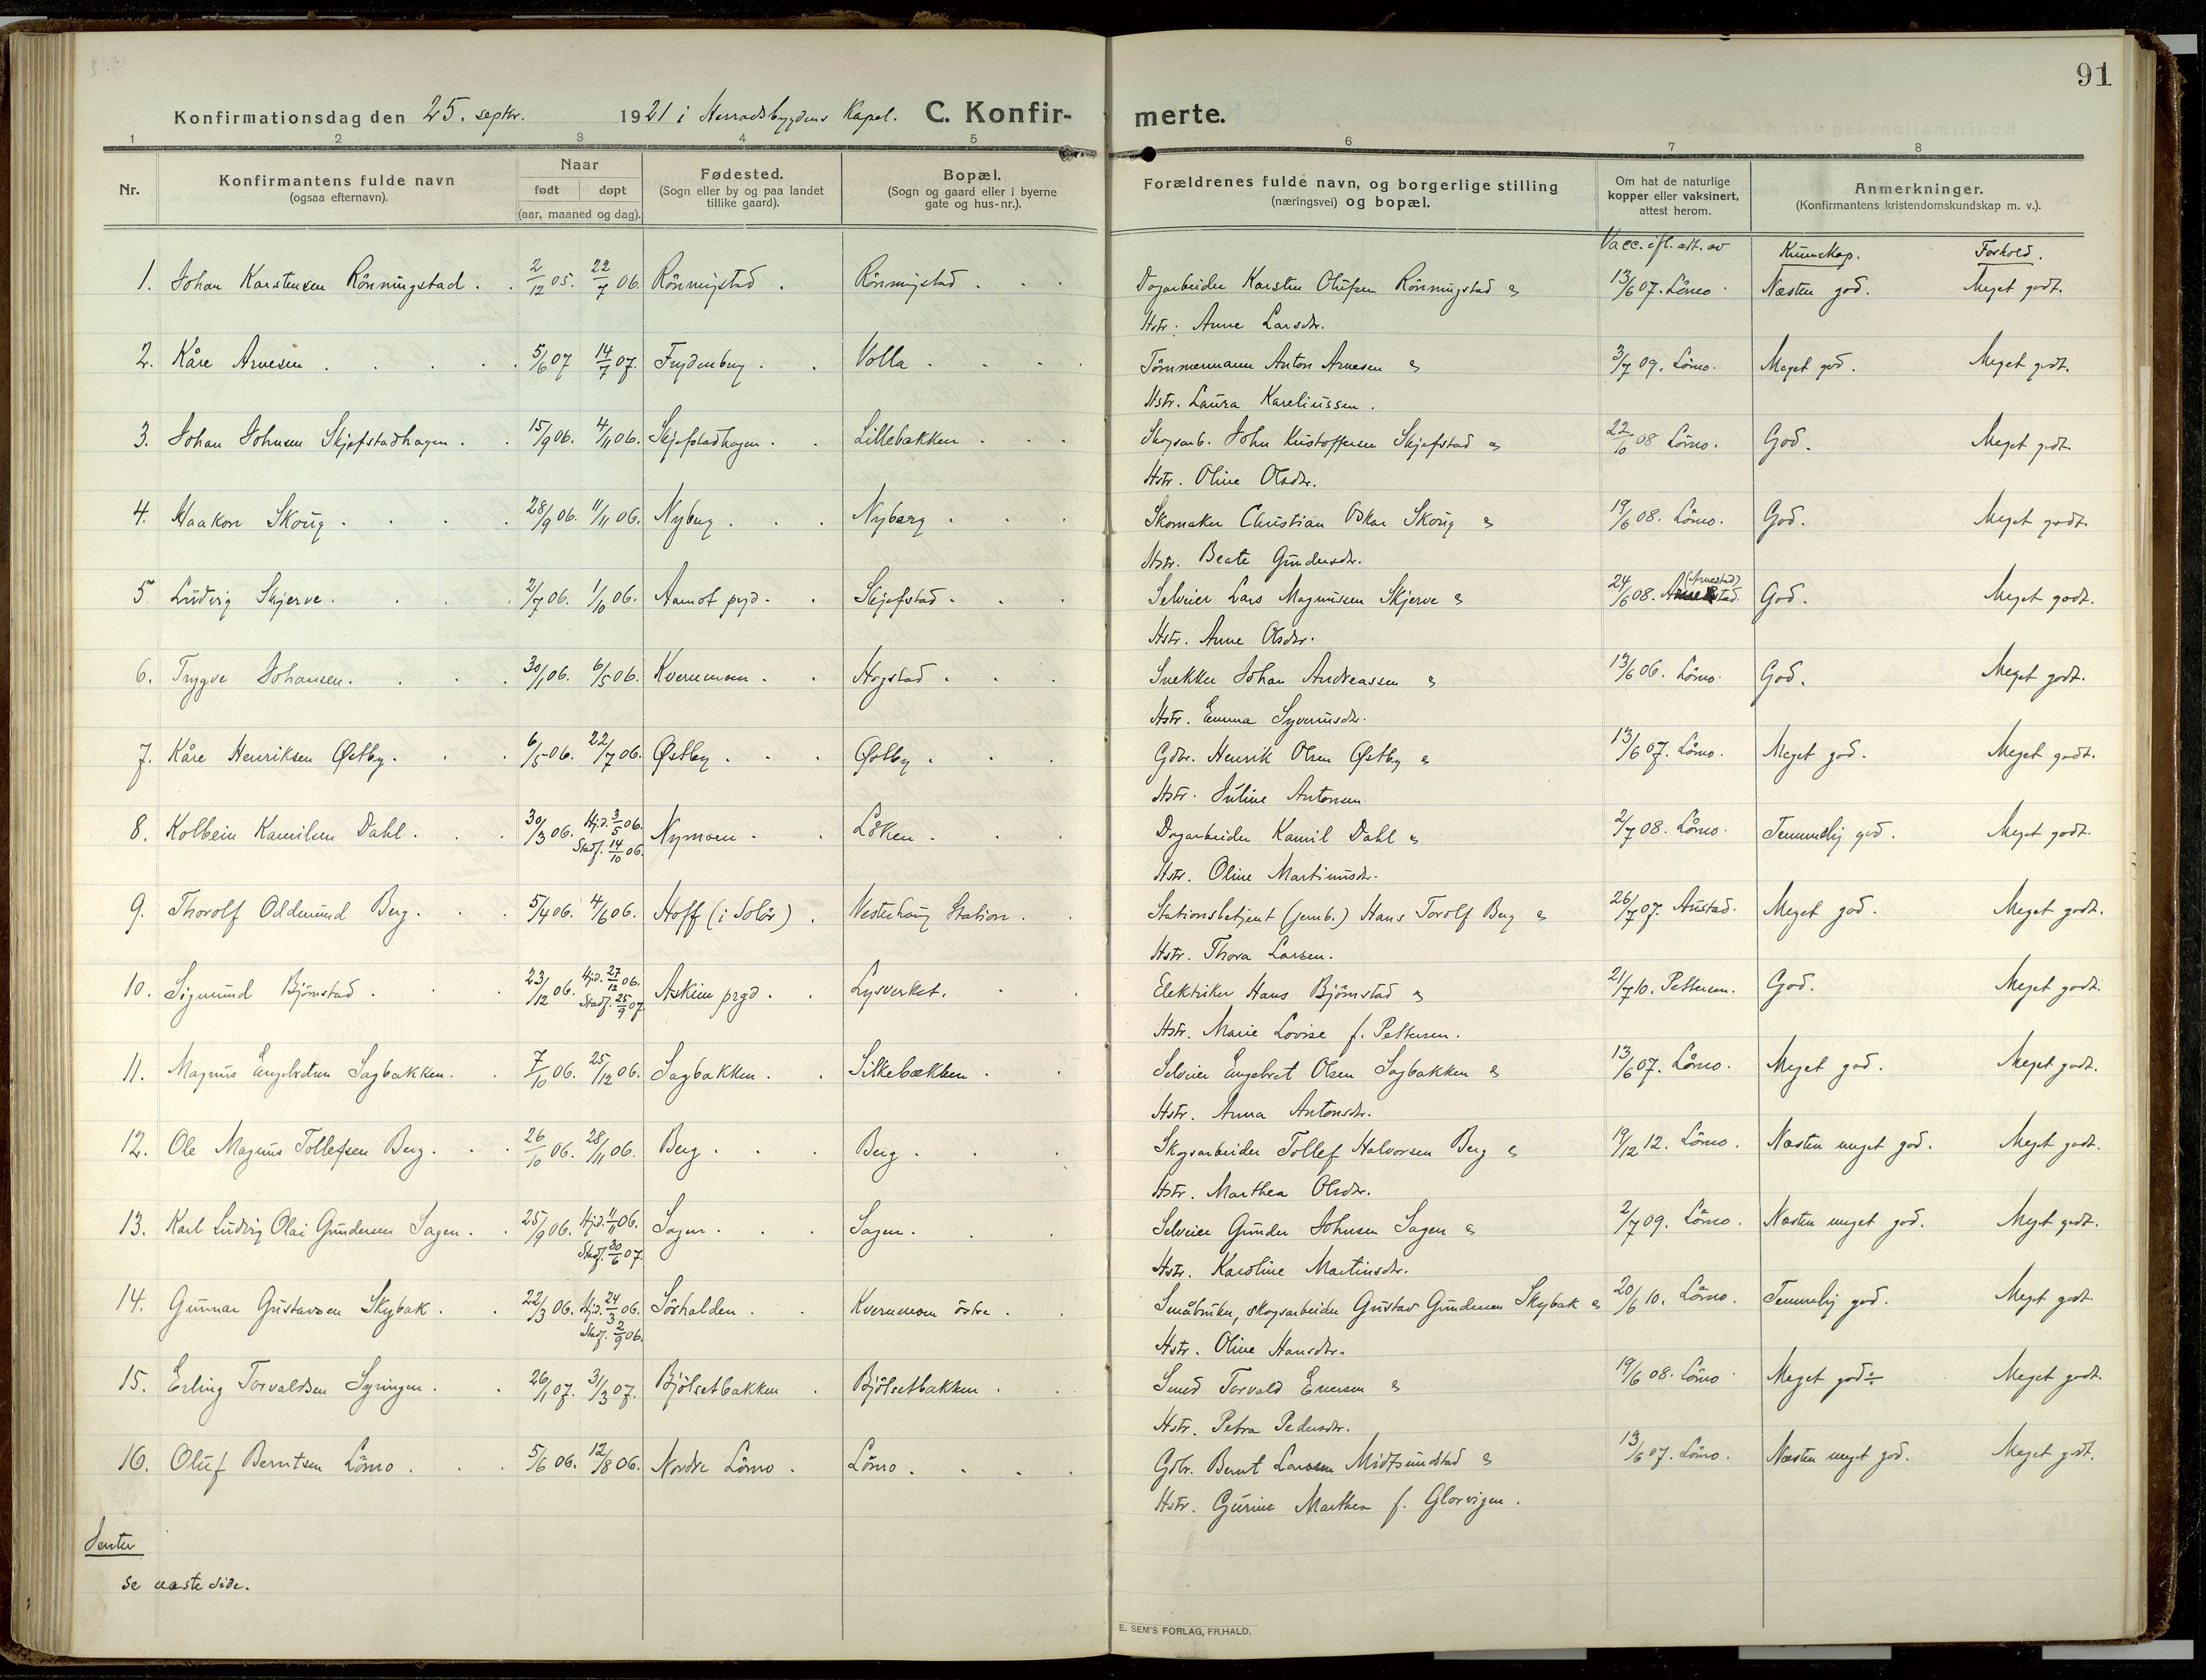 91
Konfirmationsdag den 25. septbr. 1921 i Herradsbygdens Kapel. C. Konfir- merte.
1 2 3 4 5 6 7 8
Nr.
Konfirmantens fulde navn
(ogsaa efternavn).
Naar
født døpt
(aar, maaned og dag).
Fødested.
(Sogn eller by og paa landet
tillike gaard).
Bopæl.
(Sogn og gaard eller i byerne
gate og hus-nr.).
Forældrenes fulde navn, og borgerlige stilling
(næringsvei) og bopæl.
Om hat de naturlige
kopper eller vaksinert,
attest herom.
Anmerkninger.
(Konfirmantens kristendomskundskap m. v.).
Vacc. ifl. att. av Kunnskap. Forhold.
1. Johan Karstensen Rönningstad. 2/12 05. 22/7 06. Rönningstad. Rönningstad. Dagarbeider Karsten Olufsen Rönningstad & 13/6 07. Lömo. Næsten god. Meget godt.
Hstr. Anne Larsdtr.
2. Kåre Arnesen. 5/6 07 14/7 07. Frydenberg. Volla. Tömmermann Anton Arnesen & 3/7 09. Lömo. Meget god. Meget godt.
Hstr. Laura Kareliussen.
3. Johan Johnsen Skjefstadhagen. 15/9 06. 4/11 06. Skjefstadhagen. Lillebakken. Skogsarb. John Kristoffersen Skjefstad & 22/10 08 Lömo. God. Meget godt.
Hstr. Oline Olsdtr.
4. Haakon Skoug. 28/9 06. 11/11 06. Nyberg. Nyberg. Skomaker Christian Oskar Skoug & 19/6 08. Lömo. God. Meget godt.
Hstr. Beate Gundersdtr.
5. Ludvig Skjerve. 2/7 06. 1/10 06. Aamot prgd. Skjefstad. Selveier Lars Magnussen Skjerve & 24/6 08. (Arnestad) God. Meget godt.
Hstr. Anne Olsdtr.
6. Trygve Johansen. 30/1 06. 6/5 06. Kvernmoen. Hogstad. Snekker Johan Andreassen & 13/6 06. Lömo. God. Meget godt.
Hstr. Emma Syverinsdtr.
7. Kåre Henriksen Østby. 6/5 06. 22/7 06. Østby. Østby. Gdbr. Henrik Olsen Østby & 13/6 07. Lömo. Meget god. Meget godt.
Hstr. Juline Antonsen.
8. Kolbein Kamilsen Dahl. 30/3 06. Hjd. 3/5 06. Stadf. 14/10 06. Nymoen. Löken. Dagarbeider Kamil Dahl & 2/7 08. Lömo. Temmelig god. Meget godt.
Hstr. Oline Martinusdtr.
9. Thorolf Oddmund Berg. 5/4 06. 4/6 06. Hoff (i Solör). Vesterhaug Station. Stationsbetjent (jernb.) Hans Torolf Berg & 26/7 07. Austad. Meget god. Meget godt.
Hstr. Thora Larsen.
10. Sigmund Björnstad. 23/12 06. Hjd. 27/12 06. Stadf. 25/9 07. Askim prgd. Lysverket. Elektriker Hans Björnstad & 21/7 10. Pettersen. God. Meget godt.
Hstr. Marie Lovise f. Pettersen.
11. Magnus Engebretsen Sagbakken. 7/10 06. 25/12 06. Sagbakken. Silkebækken. Selveier Engebret Olsen Sagbakken & 13/6 07. Lömo. Meget god. Meget godt.
Hstr. Anna Antonsdtr.
12. Ole Magnus Tollefsen Berg. 26/10 06. 28/11 06. Berg. Berg. Skogsarbeider Tollef Halvorsen Berg & 19/12 12. Lömo. Næsten meget god. Meget godt.
Hstr. Marthea Olsdtr.
13. Karl Ludvig Olai Gundersen Sagen. 25/9 06. Hjd. 4/11 06. Stadf. 30/6 07. Sagen. Sagen. Selveier Gunder Johnsen Sagen & 2/7 09. Lömo. Næsten meget god. Meget godt.
Hstr. Karoline Martinsdtr.
14. Gunnar Gustavsen Skybak. 22/3 06. Hjd. 24/3 06. Stadf. 2/9 06. Sörhalden. Kvernmoen östre. Småbruker, skogsarbeider Gustav Gundersen Skybak & 20/6 10. Lömo. Temmelig god. Meget godt.
Hstr. Oline Hansdtr.
15. Erling Torvaldsen Syringen. 26/1 07. 31/3 07. Bjölsetbakken. Bjölsetbakken. Smed Torvald Enersen & 19/6 08. Lömo Meget god ÷ Meget godt.
Hstr. Petra Pedersdtr.
16. Oluf Berntsen Lömo. 5/6 06. 12/8 06. Nordre Lömo. Lömo. Gdbr. Bernt Larsen Midtsundstad & 13/6 07. Lömo. Næsten meget god. Meget godt.
Hstr. Gurine Marthea f. Glorvigen.
Jenter
se næste side.
E. SEM'S FORLAG, FR.HALD.